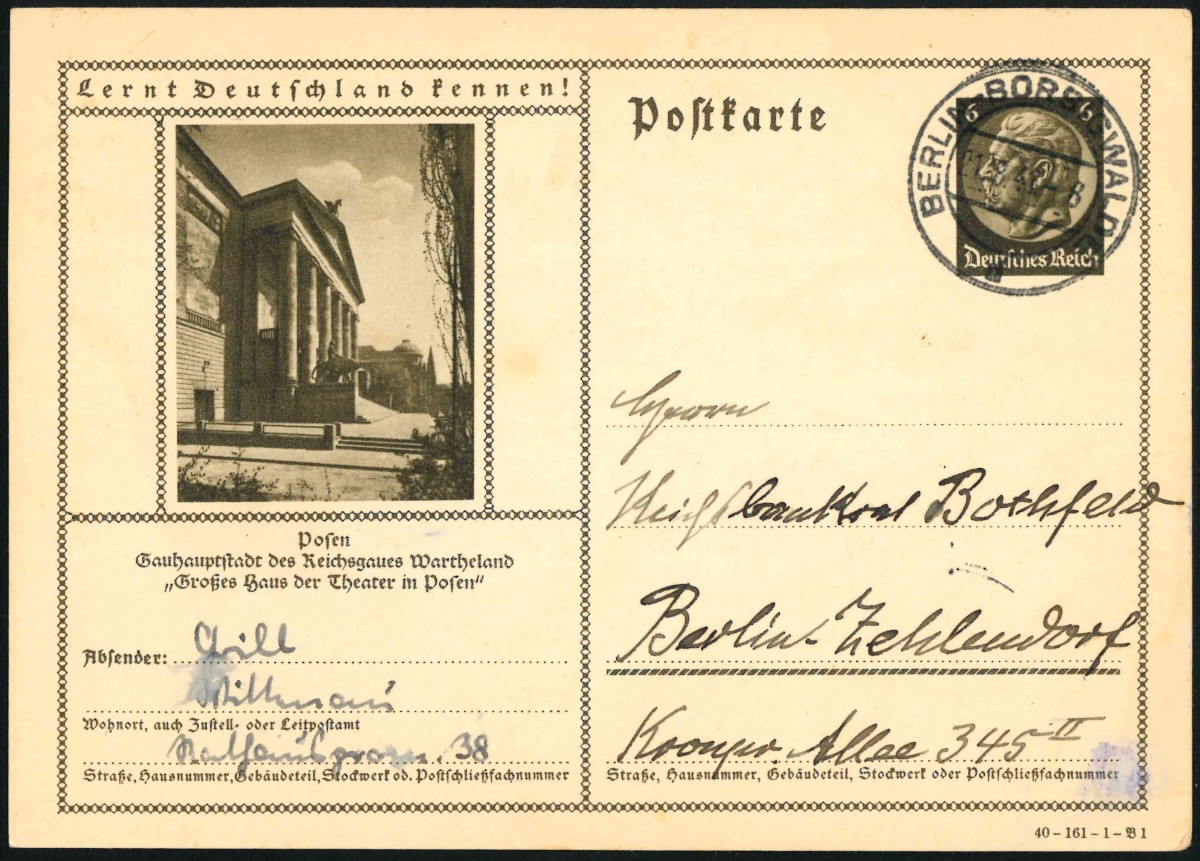 Lernt Deutschland kennen!
Postkarte
BERLIN-BORSIGWALDE
6 6
Deutsches Reich
Posen
Gauhauptstadt des Reichsgaues Wartheland
„Großes Haus der Theater in Posen“
Absender: Grill
Wittenau
Wohnort, auch Zustell- oder Leitpostamt
38
Straße, Hausnummer, Gebäudeteil, Stockwerk od. Postschließfachnummer
Herrn
Reichsbankrat Bothfeld
Berlin-Zehlendorf
Allee 345 II
Straße, Hausnummer, Gebäudeteil, Stockwerk oder Postschließfachnummer
40 – 161 – 1 – B 1